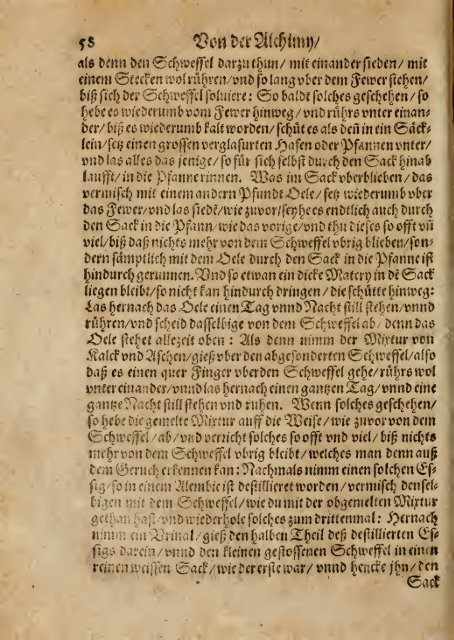 58 Von der Alchimy/
als denn den Schweffel darzu thun/ mit einander sieden/ mit
einem Stecken wol rühren/ vnd so lang vber dem Fewer stehen/
biß sich der Schweffel soluiere: So baldt solches geschehen/ so
hebe es wiederumb vom Fewer hinweg/ vnd rührs vnter einan-
der/ biß es wiederumb kalt worden/ schüt es als deñ in ein Säck-
lein/ setz einen grossen verglasurten Hafen oder Pfannen vnter/
vnd las alles das jenige/ so für sich selbst durch den Sack hinab
laufft/ in die Pfanne rinnen. Was im Sack vberblieben/ das
vermisch mit einem andern Pfundt Oele/ setz wiederumb vber
das Fewer/ vnd las siedē/ wie zuvor/ seyhe es endtlich auch durch
den Sack in die Pfann/ wie das vorige/ vnd thu dieses so offt vñ
viel/ biß daß nichts mehr von dem Schweffel vbrig blieben/ son-
dern sämptlich mit dem Oele durch den Sack in die Pfanne ist
hindurch gerunnen. Vnd so etwan ein dicke Matery in dē Sack
liegen bleibt/ so nicht kan hindurch dringen/ die schütte hinweg:
Las hernach das Oele einen Tag vnnd Nacht still stehen/ vnnd
rühren/ vnd scheid dasselbige von dem Schweffel ab/ denn das
Oele stehet allezeit oben: Als denn nimm der Mixtur von
Kalck vnd Aschen/ gieß vber den abgesonderten Schweffel/ also
daß es einen quer Finger vber den Schweffel gehe/ rührs wol
vnter einander/ vnnd las hernach einen gantzen Tag/ vnnd eine
gantze Nacht still stehen vnd ruhen. Wenn solches geschehen/
so hebe die gemelte Mixtur auff die Weise/ wie zuvor von dem
Schweffel/ ab/ vnd verricht solches so offt vnd viel/ biß nichts
mehr von dem Schweffel vbrig bleibt/ welches man denn auß
dem Geruch erkennen kan: Nachmals nimm einen solchen Es-
sig/ so in einem Alembic ist destillieret worden/ vermisch densel-
bigen mit dem Schweffel/ wie du mit der obgemelten Mixtur
gethan hast/ vnd wiederhole solches zum drittenmal: Hernach
nimm ein Vrinal/ gieß den halben Theil deß destillierten Es-
sigs darein/ vnnd den kleinen gestossenen Schweffel in einen
reinen weissen Sack/ wie der erste war/ vnnd hencke jhn/ den
Sack